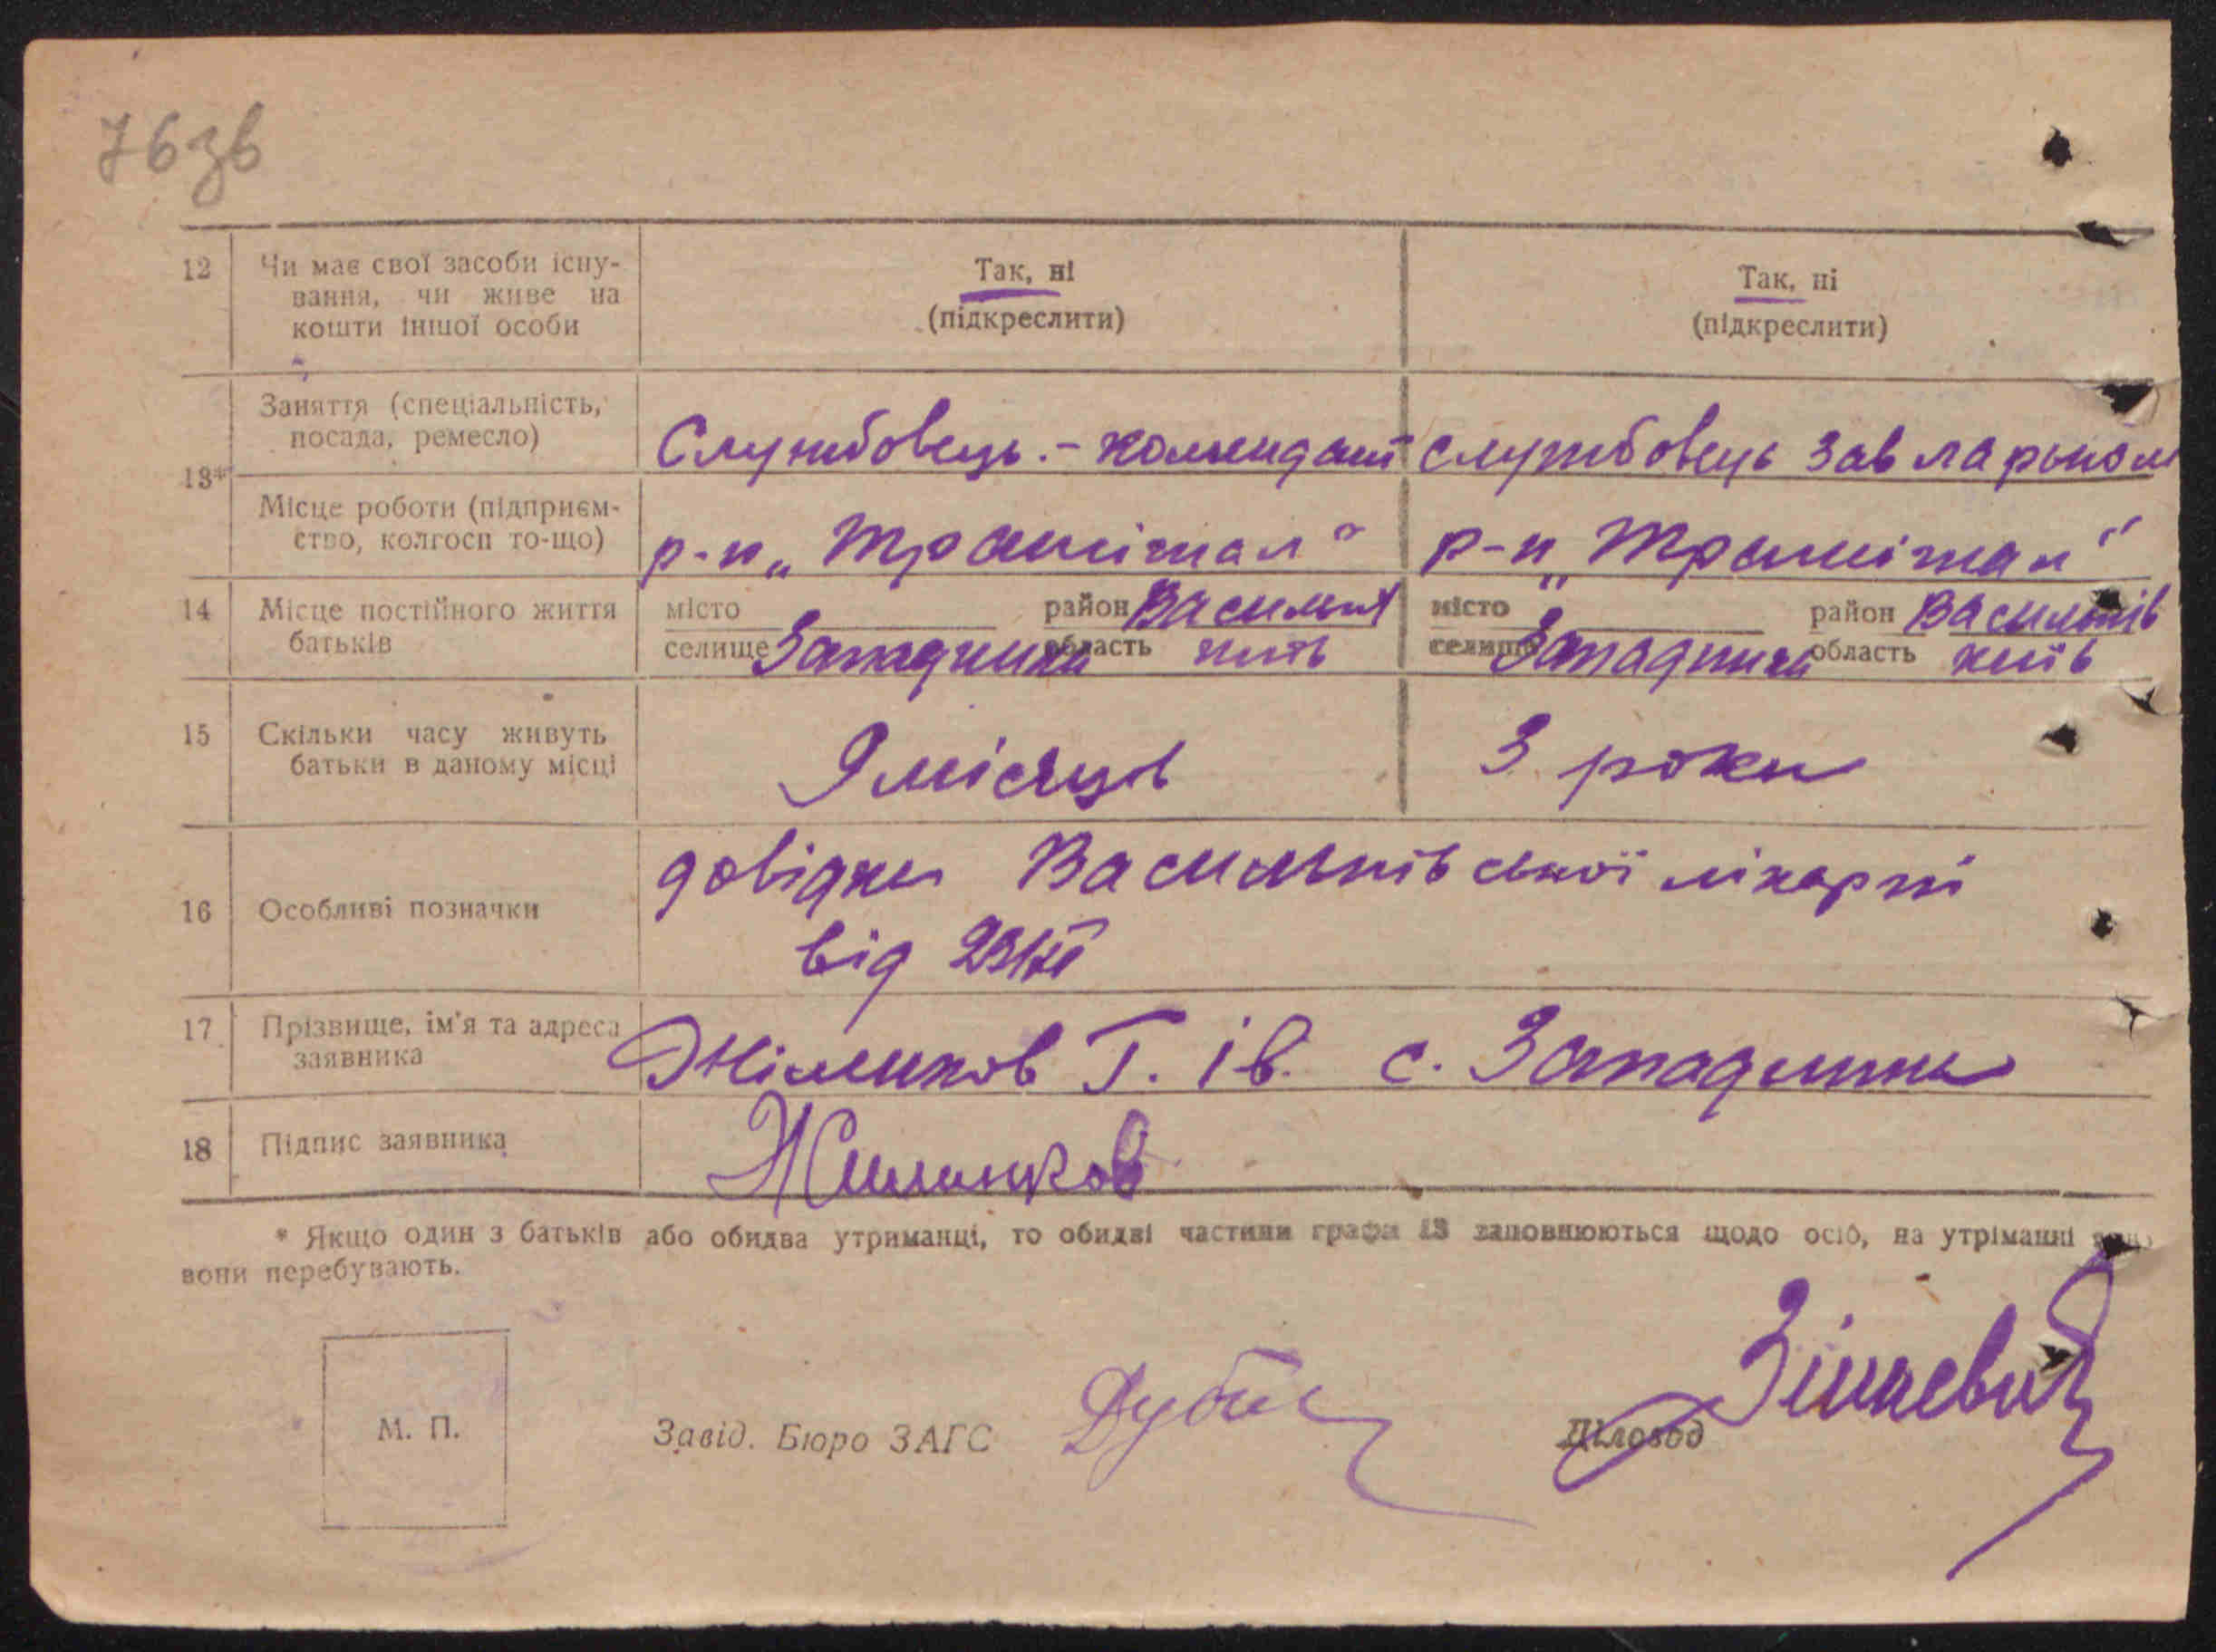 76зв
12 Чи має свої засоби існу- Так, ні Так, ні
вання, чи живе на (підкреслити) (підкреслити)
кошти іншої особи
Заняття (спеціальність, Службовець.- комендант службовець зав ларьком
посада, ремесло)
13*
Місце роботи (підприєм- р-п „Транзітал" р-п „Транзітал"
ство, колгосп то-що)
14 Місце постійного життя місто район Васильків місто район Васильків
батьків селище Западинка область Київ селище Западинка область Київ
15 Скільки часу живуть 9 місяців 3 роки
батьки в даному місці
16 Особливі позначки довідка Васильківської лікарні
від 23/XI
17 Прізвище, ім'я та адреса Жіминков Т. Ів. с. Западинка
заявника
18 Підпис заявника Жиминков
* Якщо один з батьків або обидва утриманці, то обидві частини графи 13 заповнюються щодо осіб, на утріманні яких
вони перебувають.
М. П. Завід. Бюро ЗАГС Діловод Зінкевич